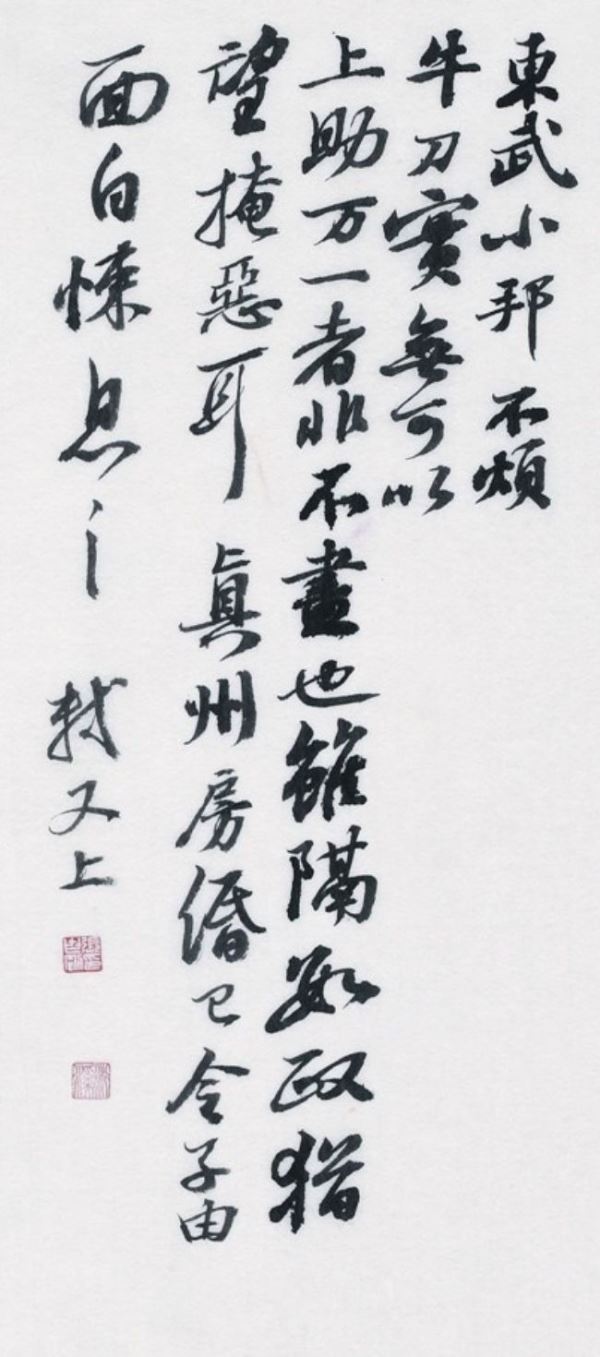 東武小邦不煩
牛刀實無可以
上助万一者非不盡也雖隔數政猶
望掩惡耳真州房緡已令子由
面白悚息之軾又上